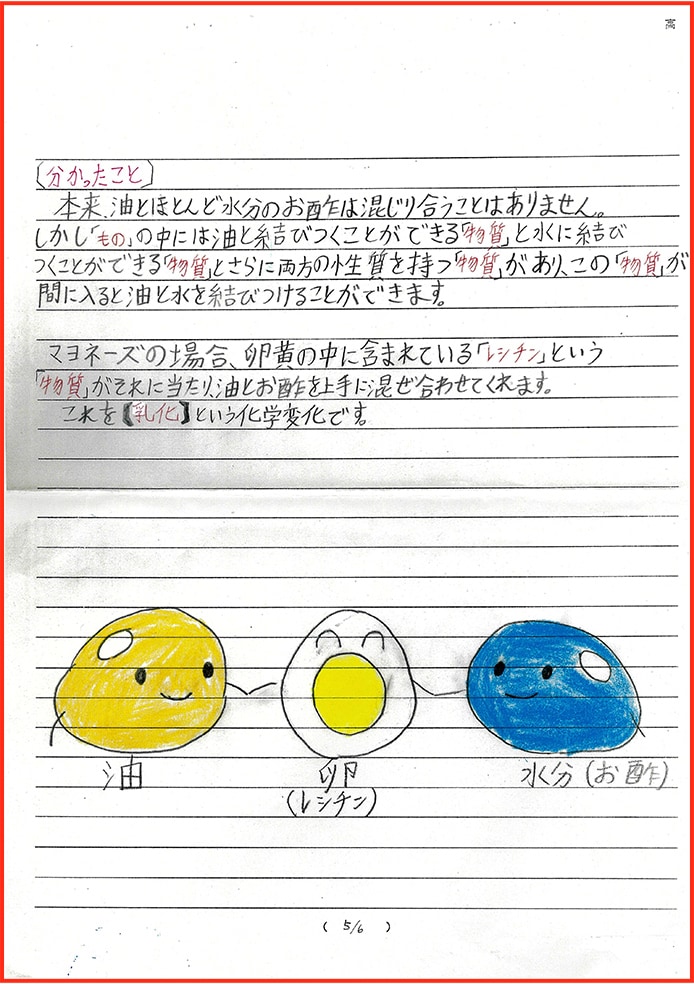 高
〔分かったこと〕
本来、油とほとんど水分のお酢は混じり合うことはありません。
しかし「もの」の中には油と結びつくことができる「物質」と水に結び
つくことができる「物質」とさらに両方の性質を持つ「物質」があり、この「物質」が
間に入ると油と水を結びつけることができます。
マヨネーズの場合、卵黄の中に含まれている「レシチン」という
「物質」がそれに当たり、油とお酢を上手に混ぜ合わせてくれます。
これを【乳化】という化学変化です。
油
卵
(レシチン)
水分(お酢)
( 5/6 )